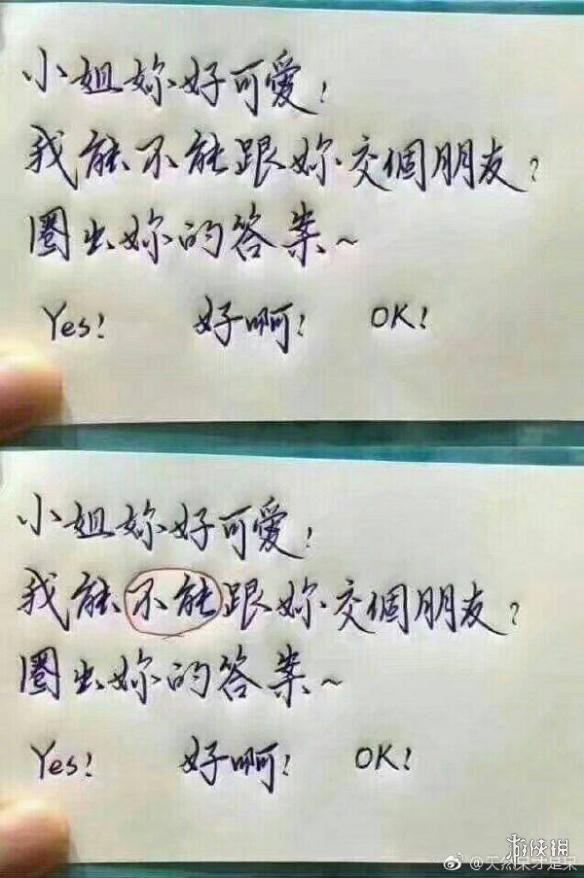 小姐妳好可愛!
我能不能跟妳交個朋友?
圈出妳的答案~
Yes! 好啊! OK!
小姐妳好可愛!
我能不能跟妳交個朋友?
圈出妳的答案~
Yes! 好啊! OK!
游侠网
@天然呆才是呆